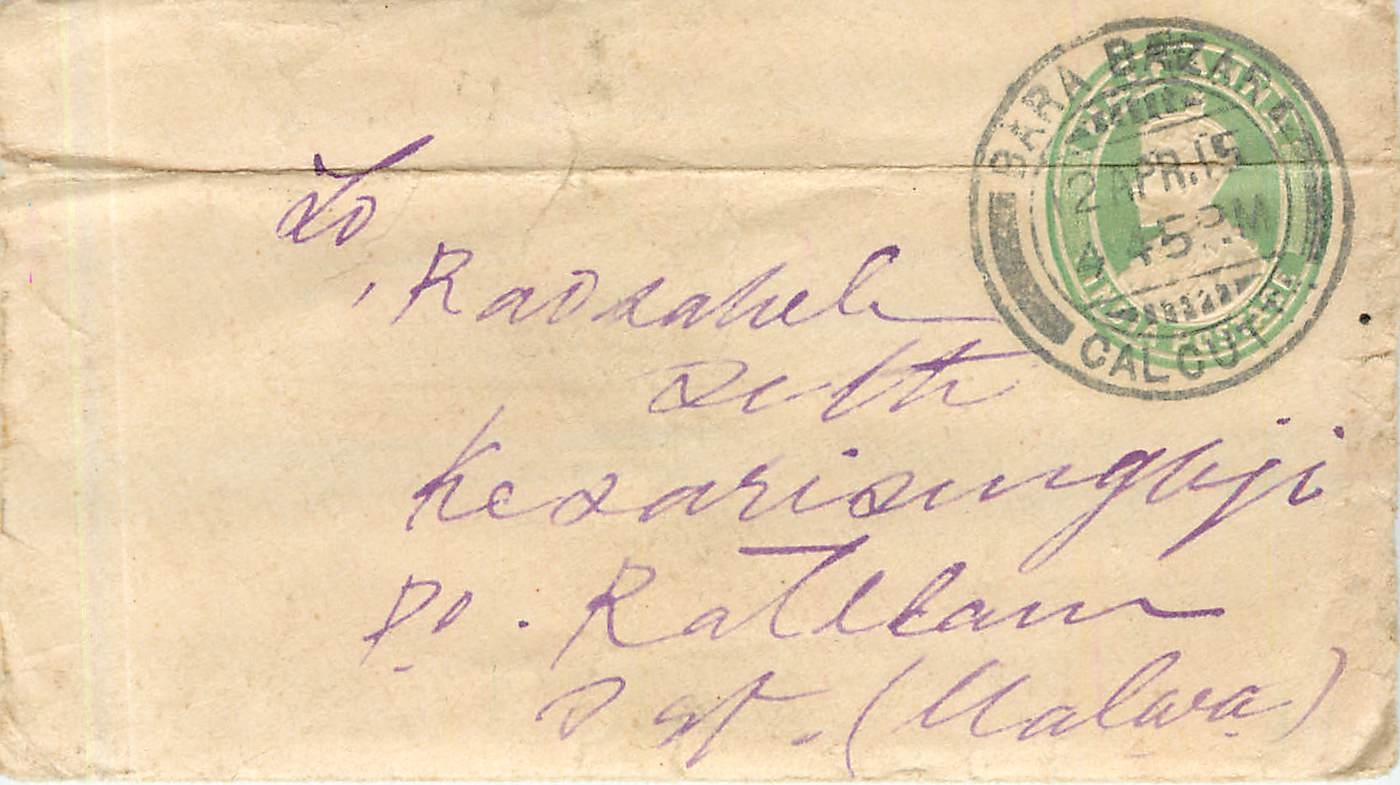 BARA BAZAR
2 APR.15
CALCUTTA
To
Raosaheb
Seth
Kesarisinghji
Po. Rattlam
(Malwa)